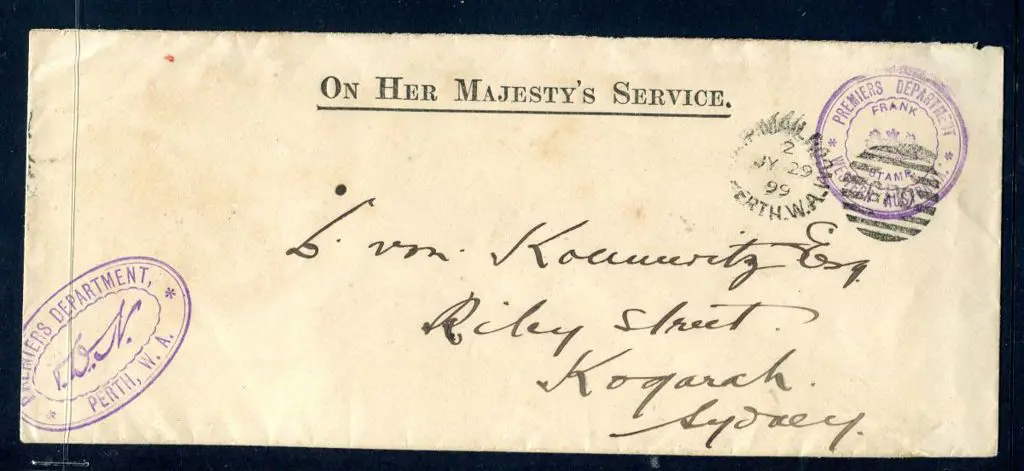 ON HER MAJESTY'S SERVICE.
PREMIERS DEPARTMENT
FRANK
STAMP
WESTERN AUSTRALIA
2
JY 29
99
PERTH. W.A.
von Esq
Riley Street.
Kogarah.
Sydney.
PREMIERS DEPARTMENT,
PERTH, W. A.